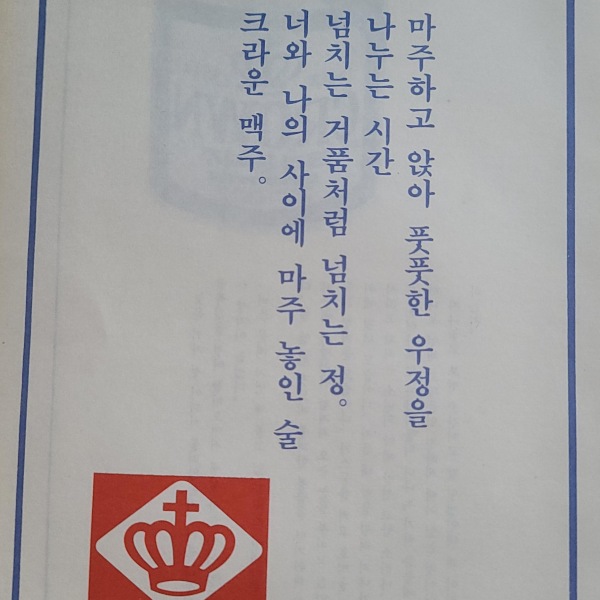 마주하고 앉아 풋풋한 우정을
나누는 시간
넘치는 거품처럼 넘치는 정。
너와 나의 사이에 마주 놓인 술
크라운 맥주。